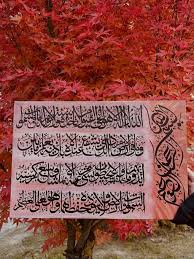 الله لا إله إلا هو الحي القيوم لا تأخذه سنة ولا نوم له ما في السموات
وما في الأرض من ذا الذي يشفع عنده إلا بإذنه يعلم ما بين
أيديهم وما خلفهم ولا يحيطون بشيء من علمه إلا بما شاء وسع كرسيه
السموات والأرض ولا يئوده حفظهما وهو العلي العظيم